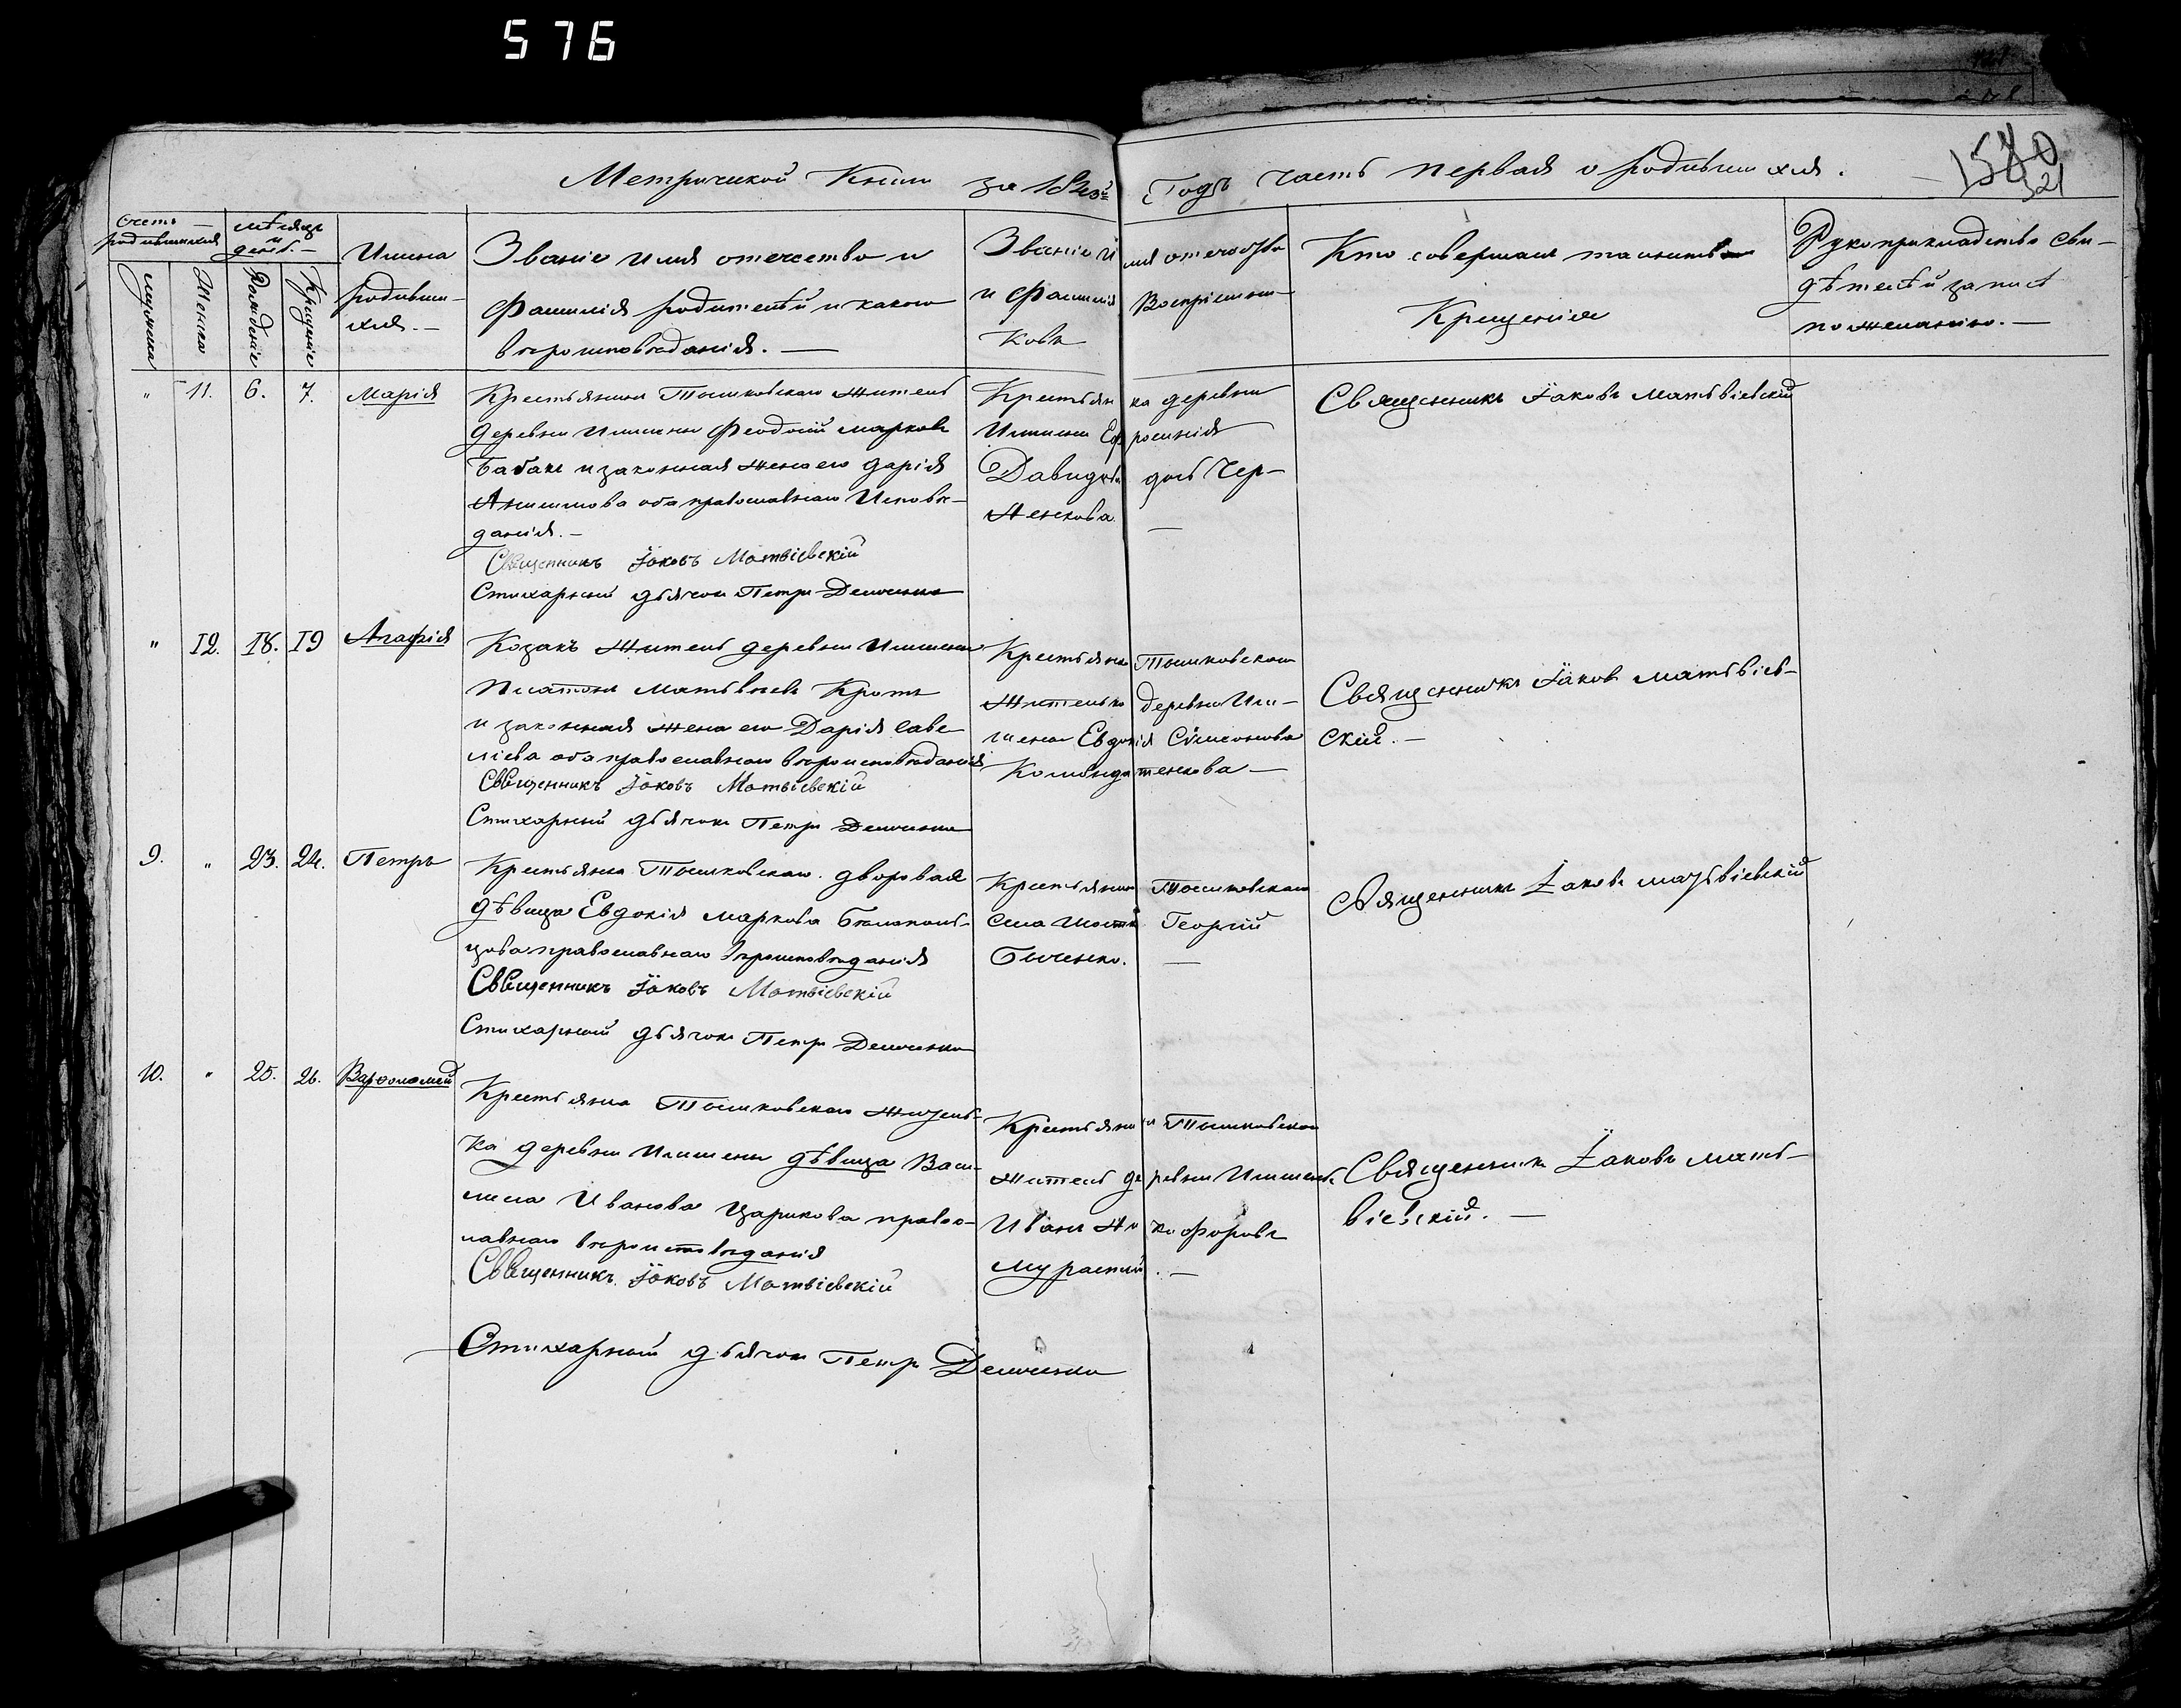 576
1580
321
Метрической Книги за 1843й Годъ часть первая о родившихся.
Счетъ родившихся
мѣсяцъ и день.—
мужска
Женска
Рожденіе
Крещеніе
Имена
родивши-
хся.—
Званіе имя отечество и
Фамилія родителей и какого
вѣроисповѣданія.—
Званіе имя отечество
и Фамилія Воспріемни-
ковъ
Кто совершалъ таинство
Крещенія
Рукоприкладство сви-
дѣтелей записи
по желанію.—
" 11. 6. 7. Марія
Крестьянинъ Тошковскаго житель
деревни Феодосій марковъ
Бабакъ и законная жена его дарія
Анисимова оба православнаго Исповѣ-
данія.—
Священникъ Іаковъ Матвіевскій
Стихарный дьячокъ Петръ
Крестьянка деревни
Ефросинія
Давидова дочь Чер-
ненкова —
Священникъ Іаковъ матьвіевскій
" 12. 18. 19 Агафія
Козакъ житель деревни
Платонъ Матьвѣевъ Кротъ
и законная жена его Дарія Саве
ліева оба православнаго вѣроисповѣданія
Священникъ Іаковъ Матвіевскій
Стихарный дьячокъ Петръ
Крестьянка Тошковскаго
жителька деревни
Евдокія Сѵмеонова
—
Священникъ Іаковъ матьвіев-
скій.—
9. " 23. 24. Петръ
Крестьянка Тошковскаго дворовая
дѣвица Евдокія маркова
православнаго вѣроисповѣданія
Священникъ Іаковъ Матвіевскій
Стихарный дьячокъ Петръ
Крестьянинъ Тошковскаго
села Георгій
Быченко. —
Священникъ Іаковъ матьвіевскій
10. " 25. 26. Варѳоломей
Крестьянка Тошковскаго житель-
ка деревни дѣвица Васи-
лиса Иванова Царикова правос-
лавнаго вѣроисповѣданія
Священникъ Іаковъ Матвіевскій
Стихарный дьячокъ Петръ
Крестьянинъ Тошковскаго
житель деревни
Иванъ Никофоровъ
—
Священникъ Іаковъ мать-
віевскій.—